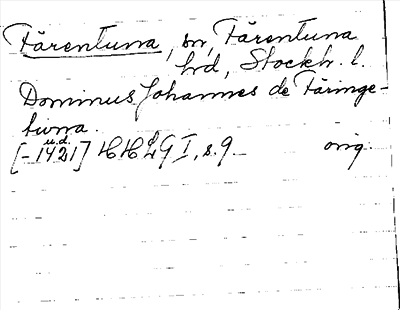 Färentuna, sn, Färentuna
hd, Stockh. l.
Dominus Johannes de Färinge-
tuna.
u.d.
[-1421] HH I, s. 9 orig.